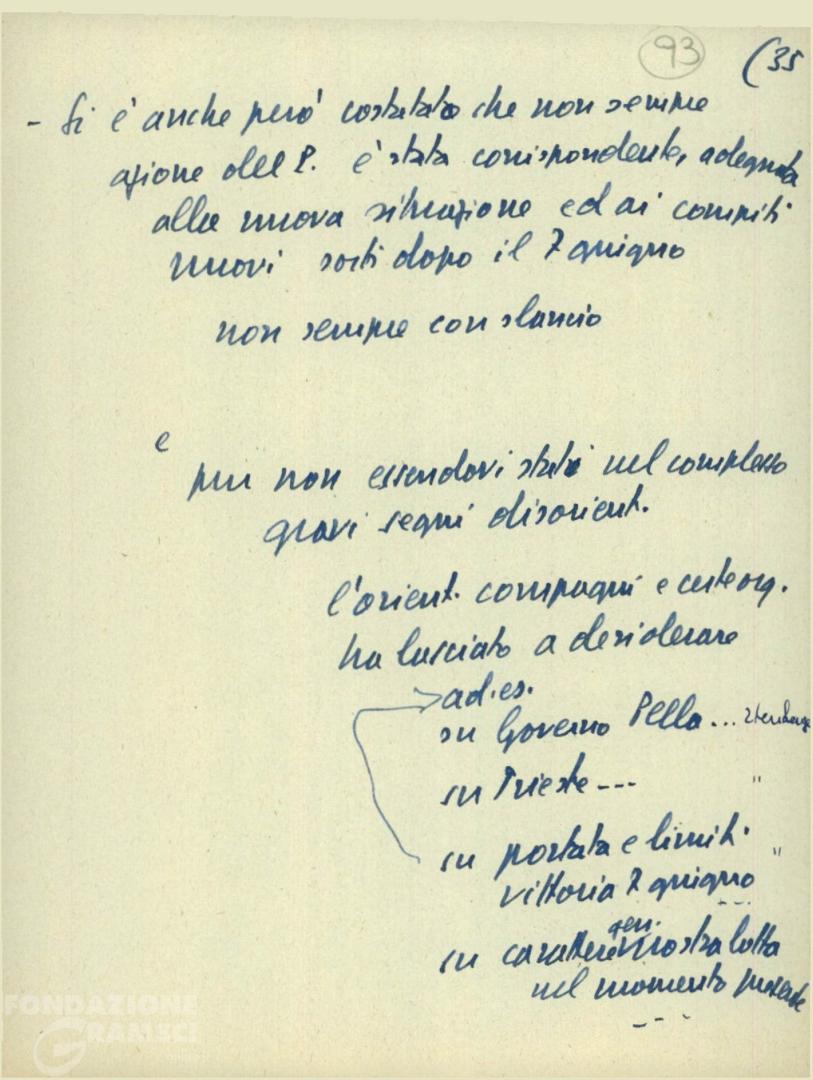 93 (35
- Si è anche però costatato che non sempre
azione del P. è stata corrispondente, adeguata
alla nuova situazione ed ai compiti
nuovi sorti dopo il 7 giugno
non sempre con slancio
e
pur non essendovi stati nel complesso
gravi segni disorient.
l'orient. compagni e certe org.
ha lasciato a desiderare
ad. es.
su Governo Pella ... 2 tendenze
su Trieste --- "
su portata e limiti "
vittoria 7 giugno ---
gen.
su carattere nostra lotta
nel momento presente
---
FONDAZIONE
GRAMSCI